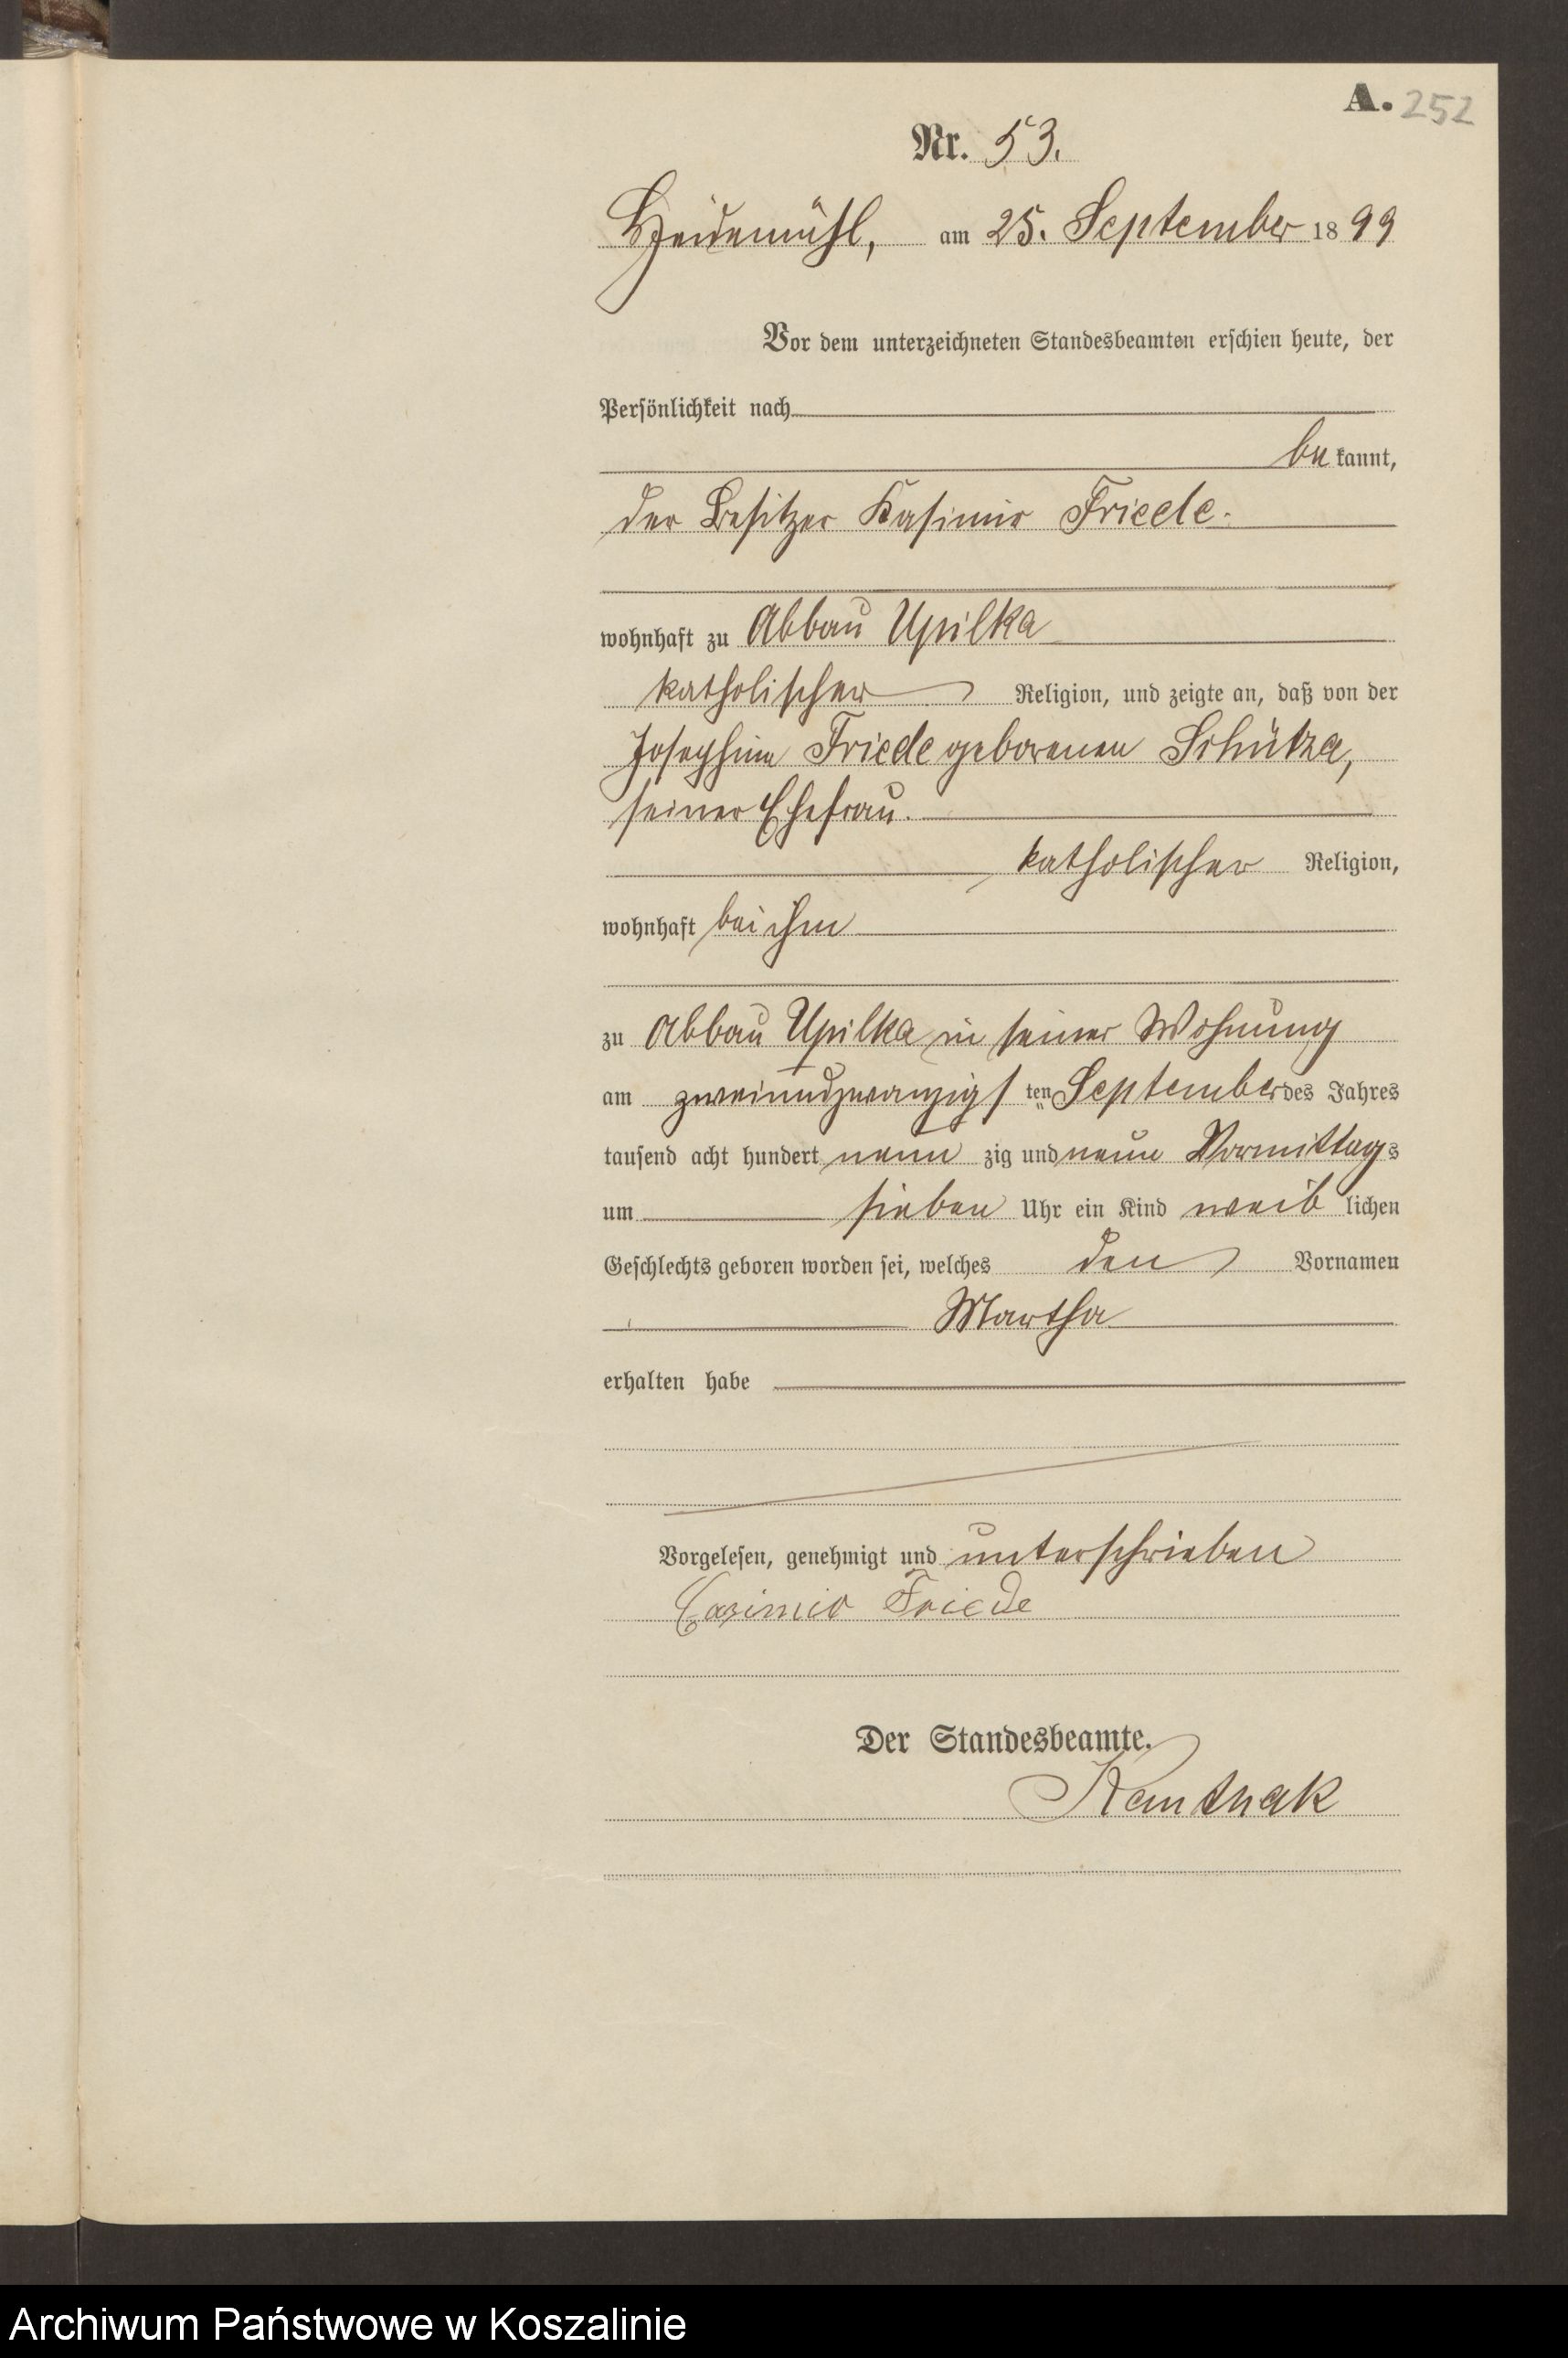 A. 252
Nr. 53.
Heidemühl, am 25. September 1899
Vor dem unterzeichneten Standesbeamten erschien heute, der
Persönlichkeit nach
bekannt,
der Besitzer Kasimir Friede.
wohnhaft zu Abbau Upilka
katholischer Religion, und zeigte an, daß von der
Josephine Friede geborenen Schütza,
seiner Ehefrau.
katholischer Religion,
wohnhaft bei ihm
zu Abbau Upilka in seiner Wohnung
am zweiundzwanzigsten September des Jahres
tausend acht hundert neunzig und neun Vormittags
um sieben Uhr ein Kind weiblichen
Geschlechts geboren worden sei, welches den Vornamen
Martha
erhalten habe
Vorgelesen, genehmigt und unterschrieben
Casimir Friede
Der Standesbeamte.
Archiwum Państwowe w Koszalinie